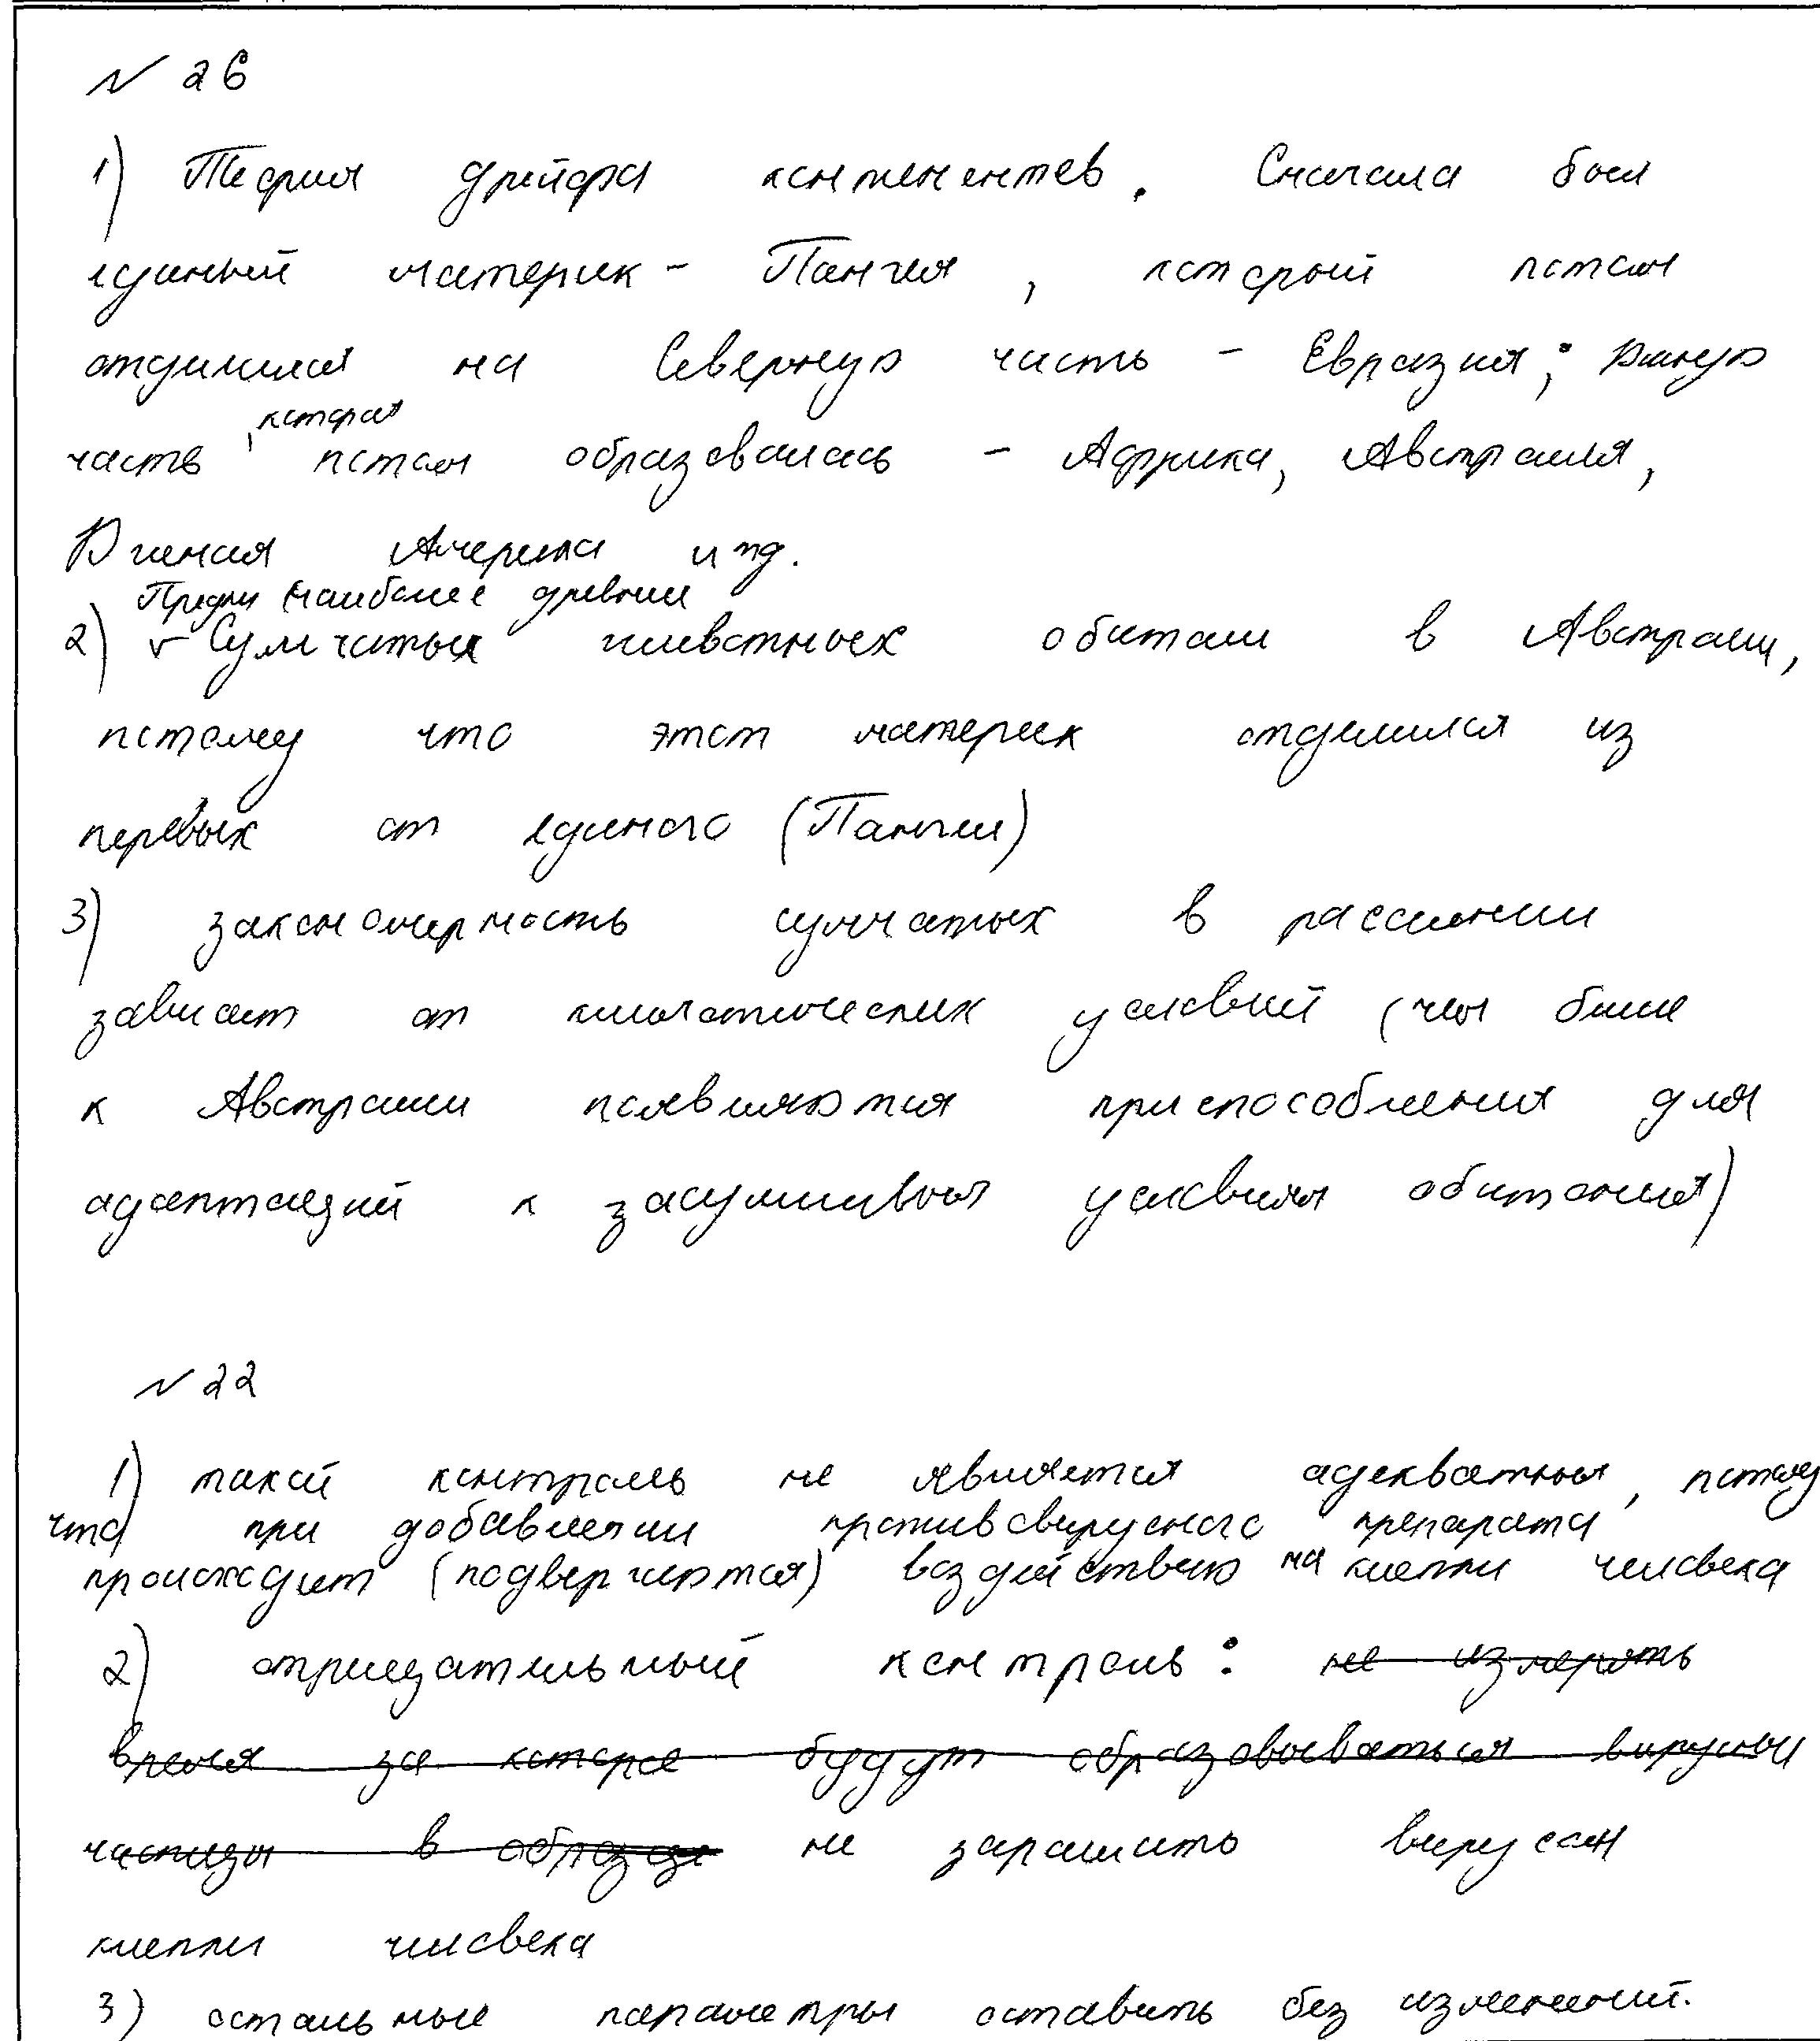 № 26
1) Теория дрейфа континентов. Сначала был
единый материк - Пангея, который потом
отделился на Северную часть - Евразия; Южную
часть, которая потом образовалась - Африка, Австралия,
Южная Америка и тд.
Предки (наиболее древние
2) Сумчатых животных обитали в Австралии,
потому что этот материк отделился из
первых от единого (Пангеи)
3) закономерность сумчатых в расселении
зависит от климатических условий (чем ближе
к Австралии появляются приспособления для
адаптаций к засушливым условиям обитания)
№ 22
1) такой контроль не является адекватным, потому
что при добавлении противовирусного препарата
происходит (подвергаются) воздействию на клетки человека
2) отрицательный контроль: не измерять
время за которое будут образовываться вирусные
частицы в образце не заражать вирусом
клетки человека
3) остальные параметры оставить без изменений.